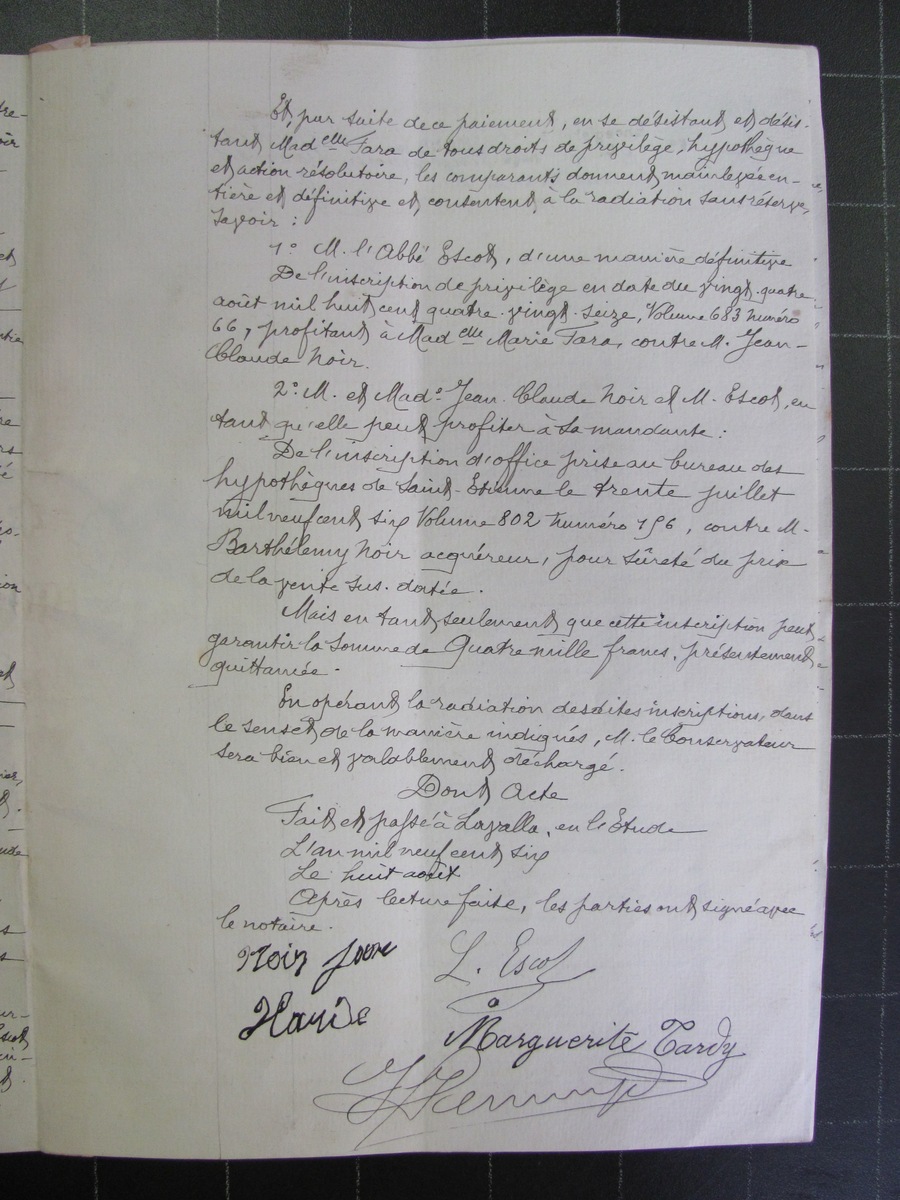 Et, par suite de ce paiement, en se désistant et désis-
tant Mad elle Fara de tous droits de privilège, hypothèque
et action résolutoire, les comparants donnent mainlevée en-
tière et définitive et consentent à la radiation sans réserve,
savoir :
1° M. l'Abbé Escot, d'une manière définitive
De l'inscription de privilège en date du vingt-quatre
août mil huit cent quatre-vingt-seize, Volume 683 numéro
66, profitant à Mad elle Marie Fara, contre M. Jean-
Claude Noir.
2° M. et Mad e Jean-Claude Noir et M. Escot, en
tant qu'elle peut profiter à sa mandante :
De l'inscription d'office prise au bureau des
hypothèques de Saint-Etienne le trente juillet
mil neuf cent six Volume 802 numéro 196, contre M.
Barthélemy Noir acquéreur, pour sûreté du prix
de la vente sus-datée.
Mais en tant seulement que cette inscription peut
garantir la somme de Quatre mille francs, présentement
quittancée.
En opérant la radiation desdites inscriptions, dans
le sens et de la manière indiqués, M. le Conservateur
sera bien et valablement déchargé.
Dont Acte
Fait et passé à Lavalla, en l'Etude
L'an mil neuf cent six
Le huit août
Après lecture faite, les parties ont signé avec
le notaire.
Noir
L. Escot
Marguerite Tardy